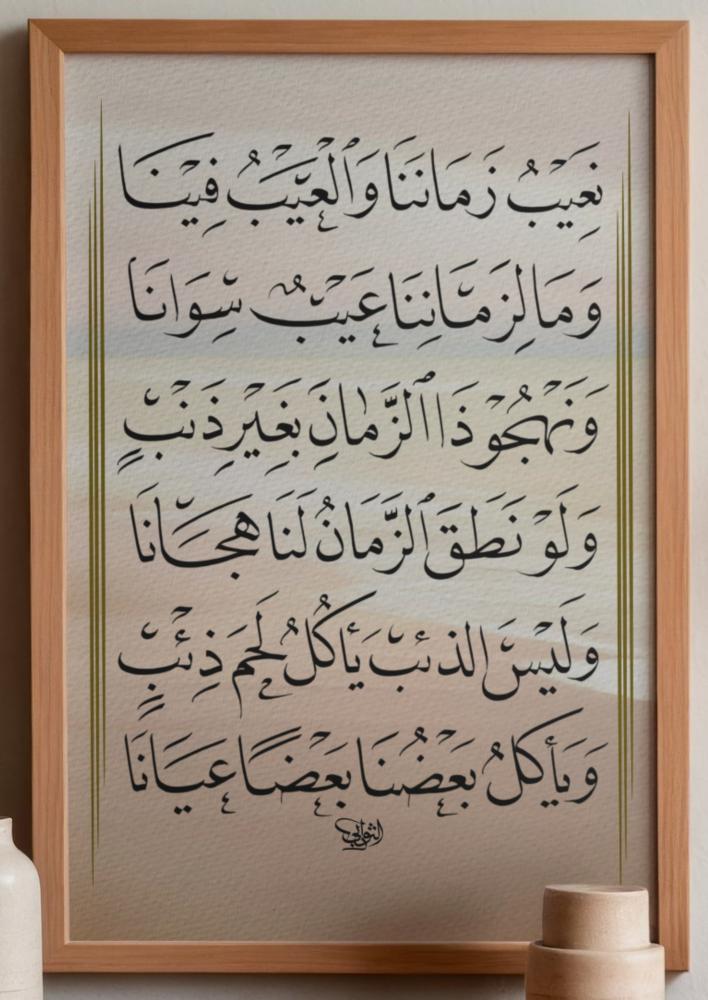 نَعِيْبُ زَمَانَنَا وَٱلْعَيْبُ فِيْنَا
وَمَا لِزَمَانِنَا عَيْبٌ سِوَانَا
وَنَهْجُوْ ذَا ٱلزَّمَانِ بِغَيْرِ ذَنْبٍ
وَلَوْ نَطَقَ ٱلزَّمَانُ لَنَا هَجَانَا
وَلَيْسَ الذئبُ يَأكُلُ لَحمَ ذِئْبٍ
وَيَأْكُلُ بَعْضُنَا بَعْضًا عَيَانَا